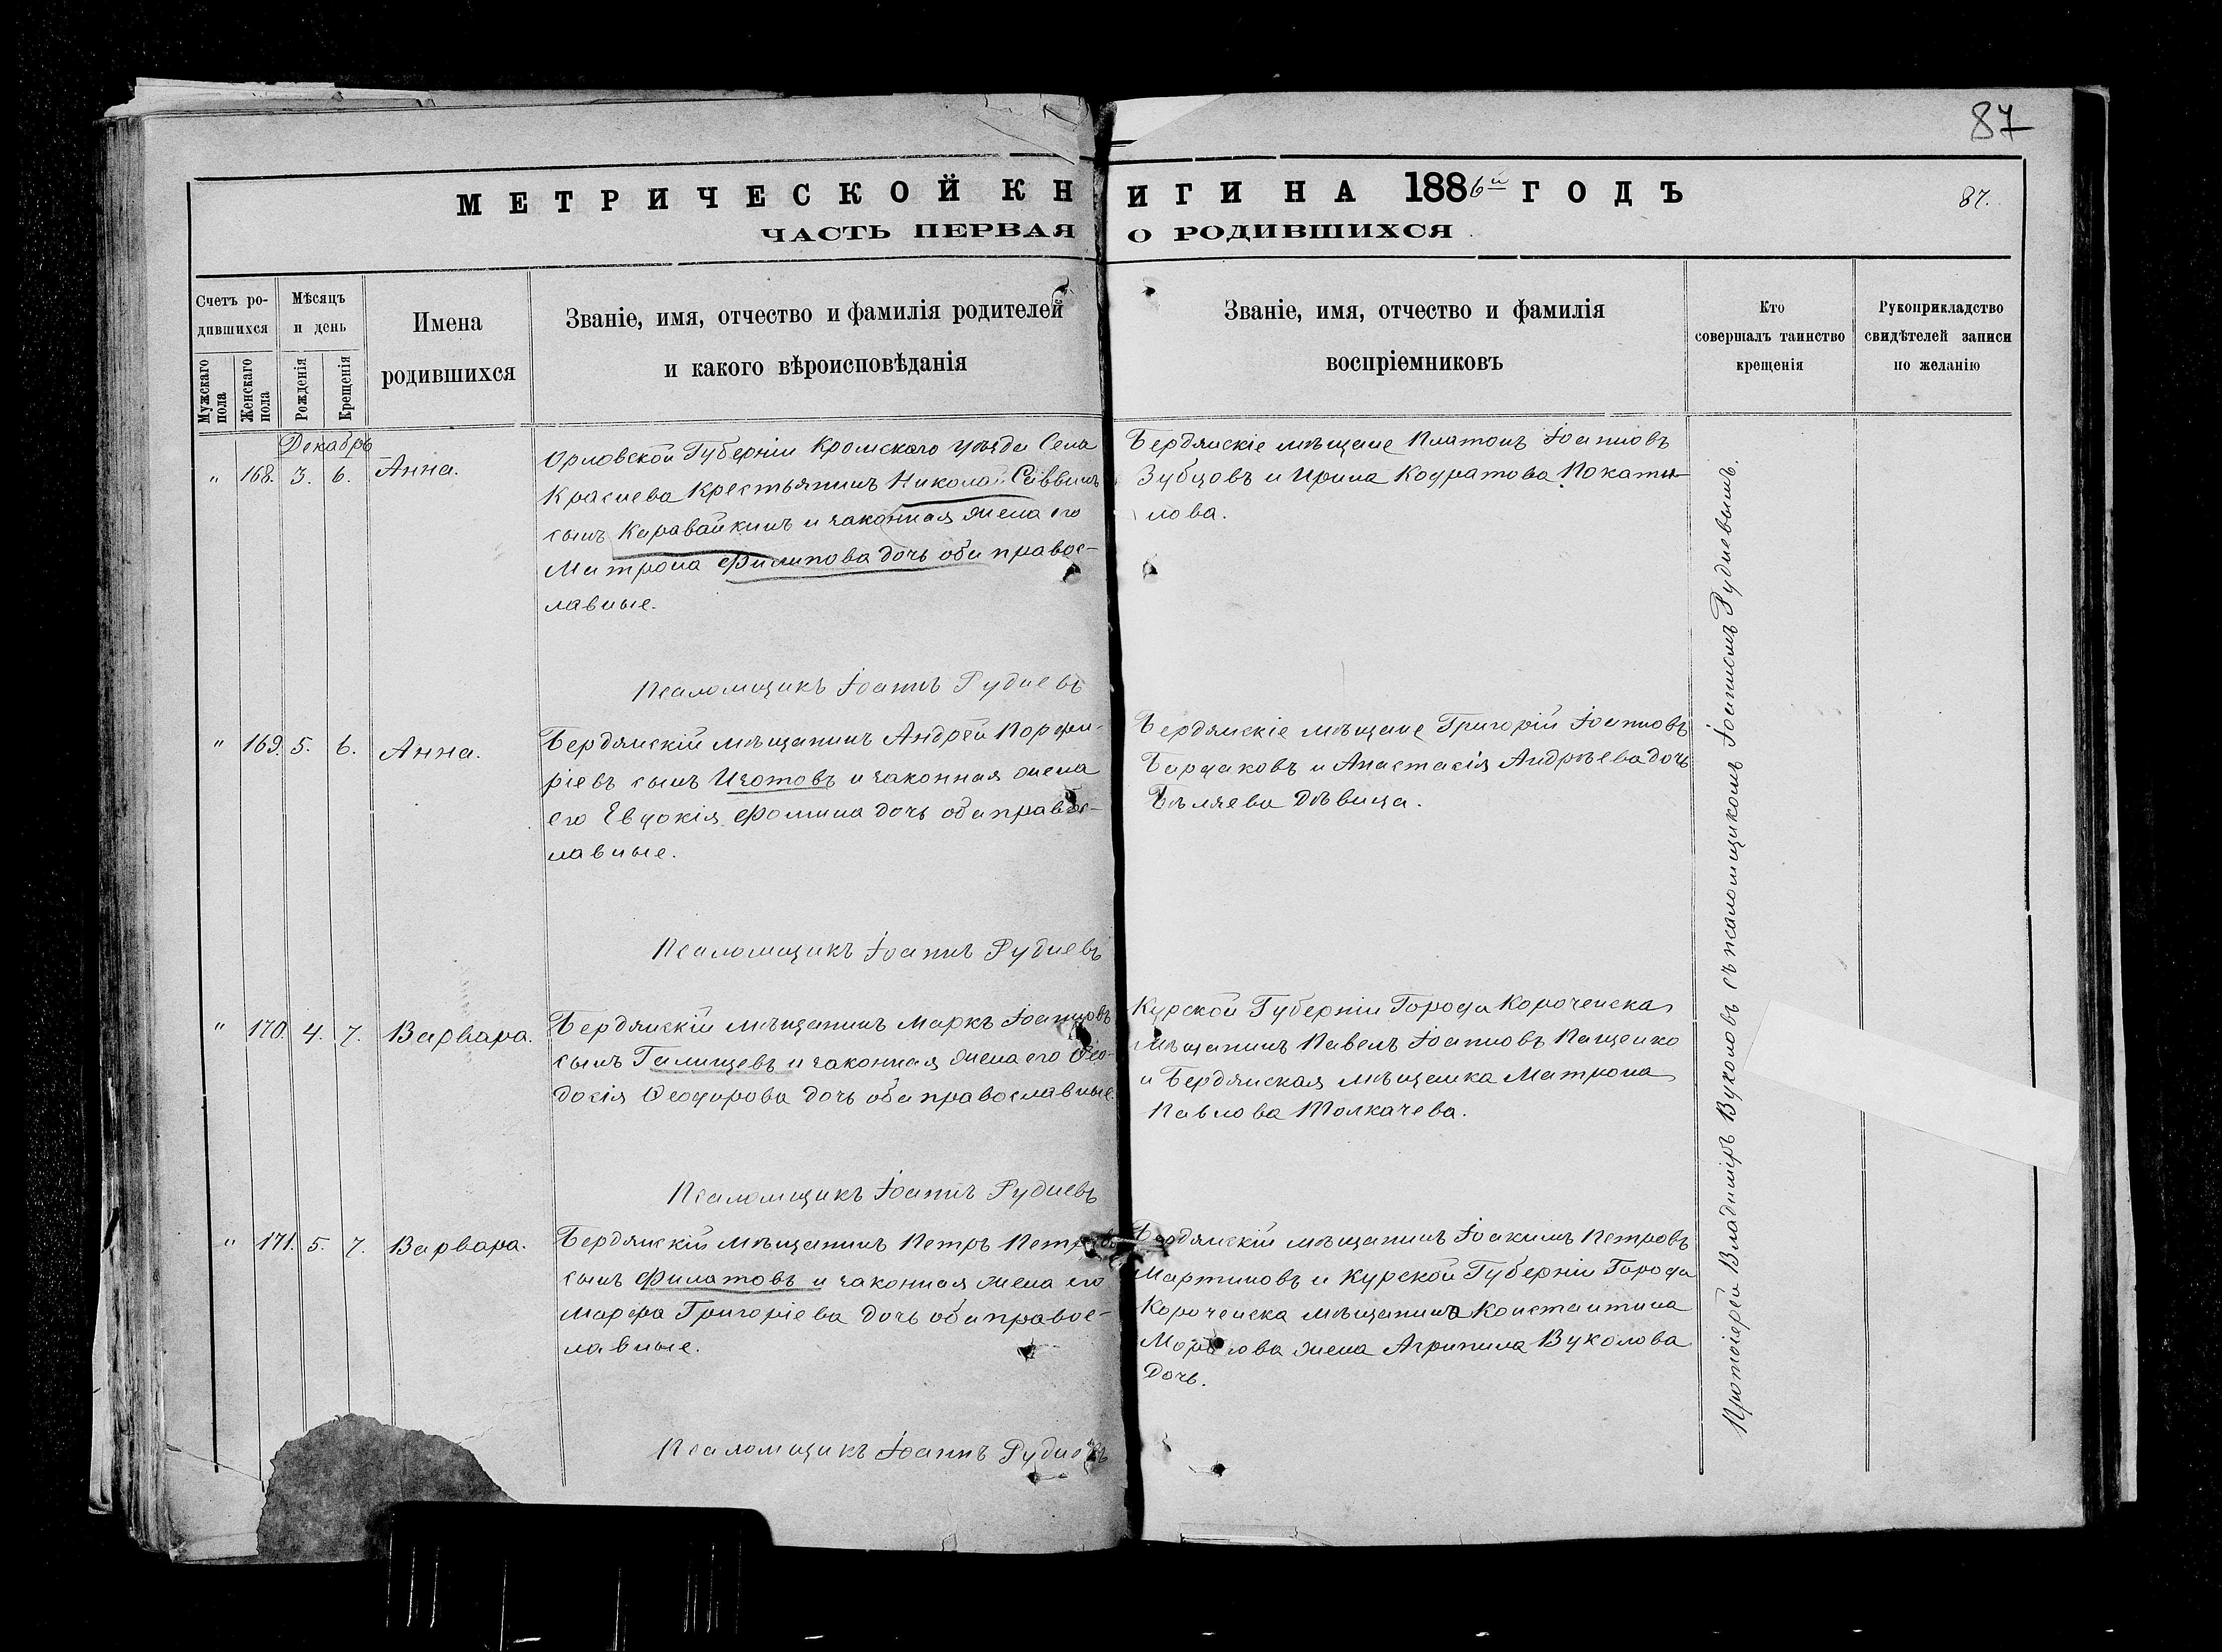 87
МЕТРИЧЕСКОЙ КНИГИ НА 1886й ГОДЪ
87.
ЧАСТЬ ПЕРВАЯ О РОДИВШИХСЯ
Счетъ ро-
дившихся
Мужскаго пола
Женскаго пола
Мѣсяцъ
и день
Рожденія
Крещенія
Имена
родившихся
Званіе, имя, отчество и фамилія родителей
и какого вѣроисповѣданія
Званіе, имя, отчество и фамилія
воспріемниковъ
Кто
совершалъ таинство
крещенія
Рукоприкладство
свидѣтелей записи
по желанію
Декабрь
" 168. 3. 6. Анна.
Орловской Губерніи Кромскаго уѣзда Села
Краснева Крестьянинъ Николай Саввинъ
сынъ Каравайкинъ и законная жена его
Матрона Филипова дочь оба правос-
лавные.
Псаломщикъ Іоаннъ Рудневъ
Бердянскіе мѣщане Платонъ Іоанновъ
Зубцовъ и Ирина Кодратова Покаты-
лова.
" 169. 5. 6. Анна.
Бердянскій мѣщанинъ Андрей Порфи-
ріевъ сынъ Изотовъ и законная жена
его Евдокія Фомина дочь оба правос-
лавные.
Псаломщикъ Іоаннъ Рудневъ
Бердянскіе мѣщане Григорій Іоанновъ
Бардаковъ и Анастасія Андрѣева дочь
Бѣляева дѣвица.
" 170. 4. 7. Варвара.
Бердянскій мѣщанинъ Маркъ Іоанновъ
сынъ Галищевъ и законная жена его Ѳео-
досія Ѳеодорова дочь оба православные.
Псаломщикъ Іоаннъ Рудневъ
Курской Губерніи Города Короченска
мѣщанинъ Павелъ Іоанновъ Пащенко
и Бердянская мѣщанка Матрона
Павлова Толкачева.
" 171. 5. 7. Варвара.
Бердянскій мѣщанинъ Петръ Петровъ
сынъ Филатовъ и законная жена его
Марфа Григоріева дочь оба правос-
лавные.
Псаломщикъ Іоаннъ Рудневъ
Бердянскій мѣщанинъ Іоакимъ Петровъ
Мартиновъ и Курской Губерніи Города
Короченска мѣщанина Константина
жена Агрипина Вуколова
дочь.
Протоіерей Владиміръ Вуколовъ съ псаломщикомъ Іоанномъ Рудневымъ.